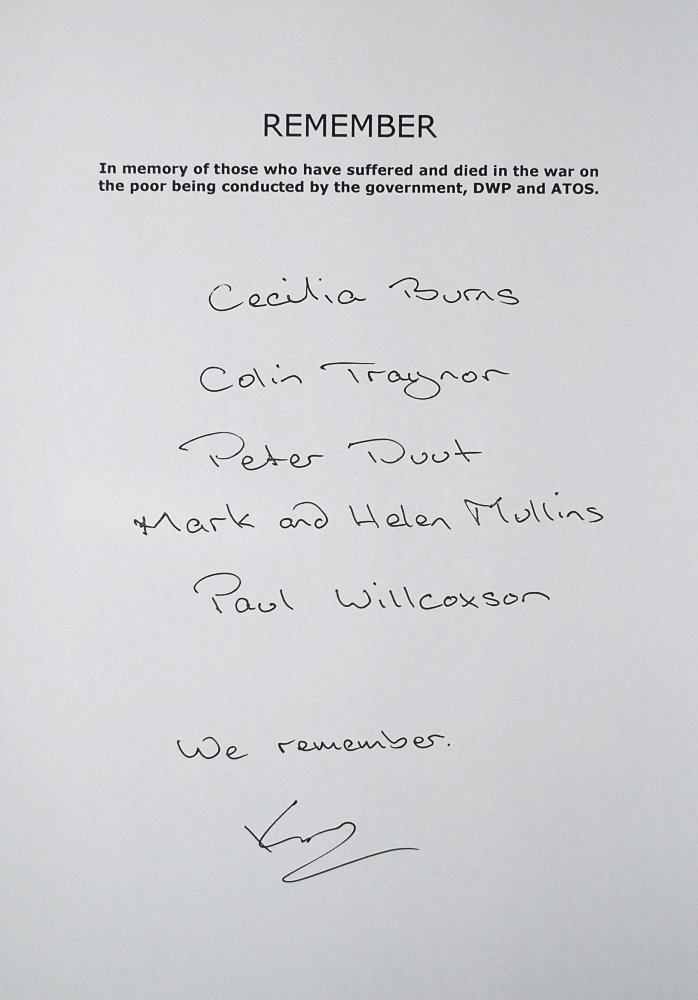 REMEMBER
In memory of those who have suffered and died in the war on
the poor being conducted by the government, DWP and ATOS.
Cecilia Burns
Colin Traynor
Peter Duut
Mark and Helen Mullins
Paul Willcoxson
We remember.